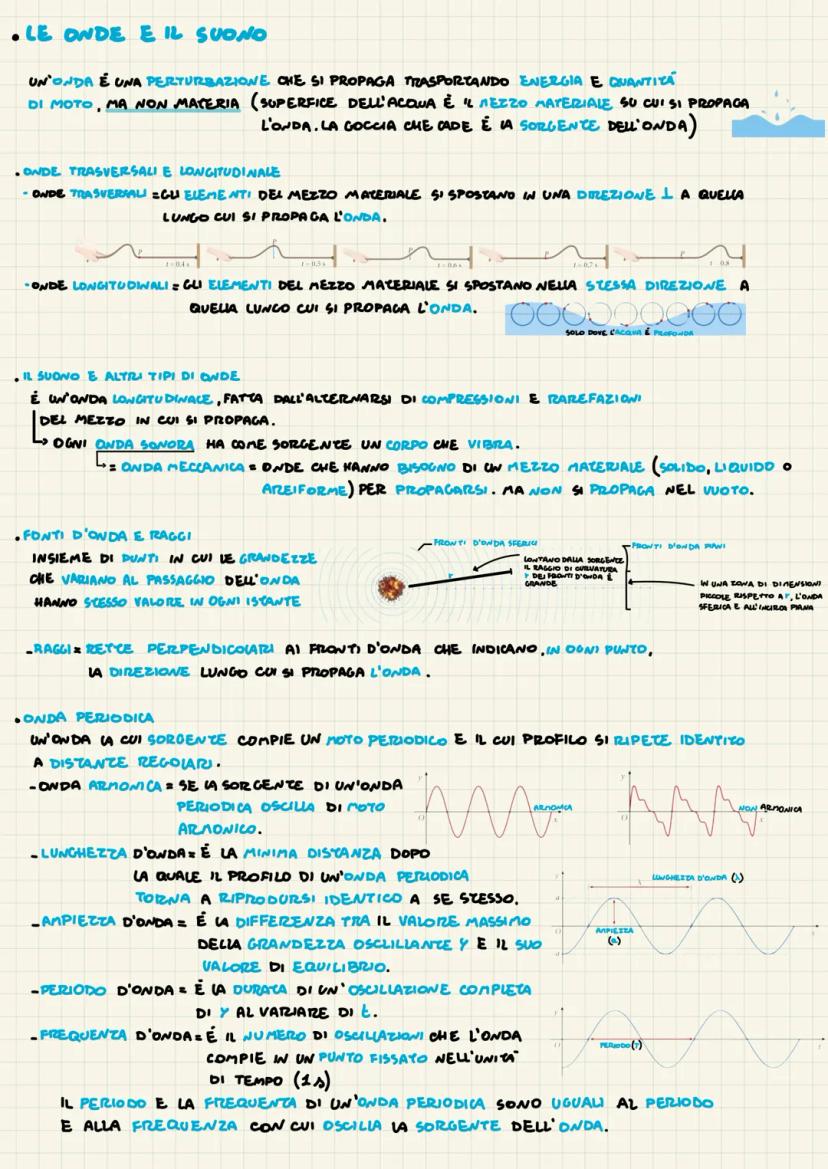 • LE ONDE E IL SUONO
UN'ONDA É UNA PERTURBAZIONE CHE SI PROPAGA TRASPORTANDO ENERGIA E QUANTITÁ
DI MOTO, MA NON MATERIA (SUPERFICE DELL'ACQUA É IL MEZZO MATERIALE SU CUI SI PROPAGA
L'ONDA. LA GOCCIA CHE CADE É LA SORGENTE DELL'ONDA)
• ONDE TRASVERSALI E LONGITUDINALE
- ONDE TRASVERSALI = GLI ELEMENTI DEL MEZZO MATERIALE SI SPOSTANO IN UNA DIREZIONE ⊥ A QUELLA
LUNGO CUI SI PROPAGA L'ONDA.
P t = 0,4 s P t = 0,5 s P t = 0,6 s P t = 0,7 s P t 0,8
- ONDE LONGITUDINALI = GLI ELEMENTI DEL MEZZO MATERIALE SI SPOSTANO NELLA STESSA DIREZIONE A
QUELLA LUNGO CUI SI PROPAGA L'ONDA.
SOLO DOVE L'ACQUA É PROFONDA
• IL SUONO E ALTRI TIPI DI ONDE
É UN'ONDA LONGITUDINALE, FATTA DALL'ALTERNARSI DI COMPRESSIONI E RAREFAZIONI
DEL MEZZO IN CUI SI PROPAGA.
↳ OGNI ONDA SONORA HA COME SORGENTE UN CORPO CHE VIBRA.
↳ = ONDA MECCANICA = ONDE CHE HANNO BISOGNO DI UN MEZZO MATERIALE (SOLIDO, LIQUIDO O
AREIFORME) PER PROPAGARSI. MA NON SI PROPAGA NEL VUOTO.
• FONTI D'ONDA E RAGGI
INSIEME DI PUNTI IN CUI LE GRANDEZZE
CHE VARIANO AL PASSAGGIO DELL'ONDA
HANNO STESSO VALORE IN OGNI ISTANTE
FRONTI D'ONDA SFERICI
r
LONTANO DALLA SORGENTE
IL RAGGIO DI CURVATURA
r DEI FRONTI D'ONDA É
GRANDE
FRONTI D'ONDA PIANI
IN UNA ZONA DI DIMENSIONI
PICCOLE RISPETTO A r, L'ONDA
SFERICA E ALL'INCIRCA PIANA
- RAGGI = RETTE PERPENDICOLARI AI FRONTI D'ONDA CHE INDICANO, IN OGNI PUNTO,
LA DIREZIONE LUNGO CUI SI PROPAGA L'ONDA.
• ONDA PERIODICA
UN'ONDA LA CUI SORGENTE COMPIE UN MOTO PERIODICO E IL CUI PROFILO SI RIPETE IDENTICO
A DISTANZE REGOLARI.
- ONDA ARMONICA = SE LA SORGENTE DI UN'ONDA
PERIODICA OSCILLA DI MOTO
ARMONICO.
y O ARMONICA x
y O NON ARMONICA x
- LUNGHEZZA D'ONDA = É LA MINIMA DISTANZA DOPO
LA QUALE IL PROFILO DI UN'ONDA PERIODICA
TORNA A RIPRODURSI IDENTICO A SE STESSO.
y LUNGHEZZA D'ONDA (λ)
a
O AMPIEZZA x
(a)
-a
- AMPIEZZA D'ONDA = É LA DIFFERENZA TRA IL VALORE MASSIMO
DELLA GRANDEZZA OSCLILLANTE Y E IL SUO
VALORE DI EQUILIBRIO.
- PERIODO D'ONDA = É LA DURATA DI UN'OSCILLAZIONE COMPLETA
DI Y AL VARIARE DI t.
- FREQUENZA D'ONDA = É IL NUMERO DI OSCILLAZIONI CHE L'ONDA
COMPIE IN UN PUNTO FISSATO NELL'UNITÁ
DI TEMPO (1 s)
y
O PERIODO (T) t
IL PERIODO E LA FREQUENZA DI UN'ONDA PERIODICA SONO UGUALI AL PERIODO
E ALLA FREQUENZA CON CUI OSCILLA LA SORGENTE DELL'ONDA.